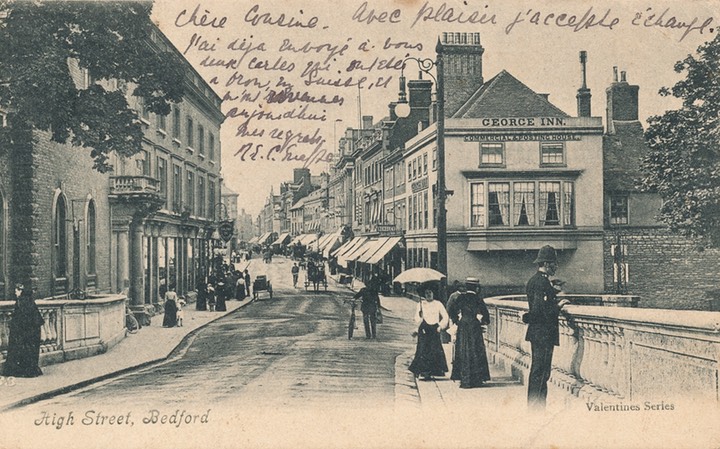 Chère Cousine. Avec plaisir j'accepte échange.
J'ai déja envoyé à vous
deux cartes qui ont été
à Oron en Suisse, et
m'
aujourd'hui
mes regrets
M.E.C.
GEORGE INN.
COMMERCIAL & POSTING HOUSE
High Street, Bedford
Valentines Series